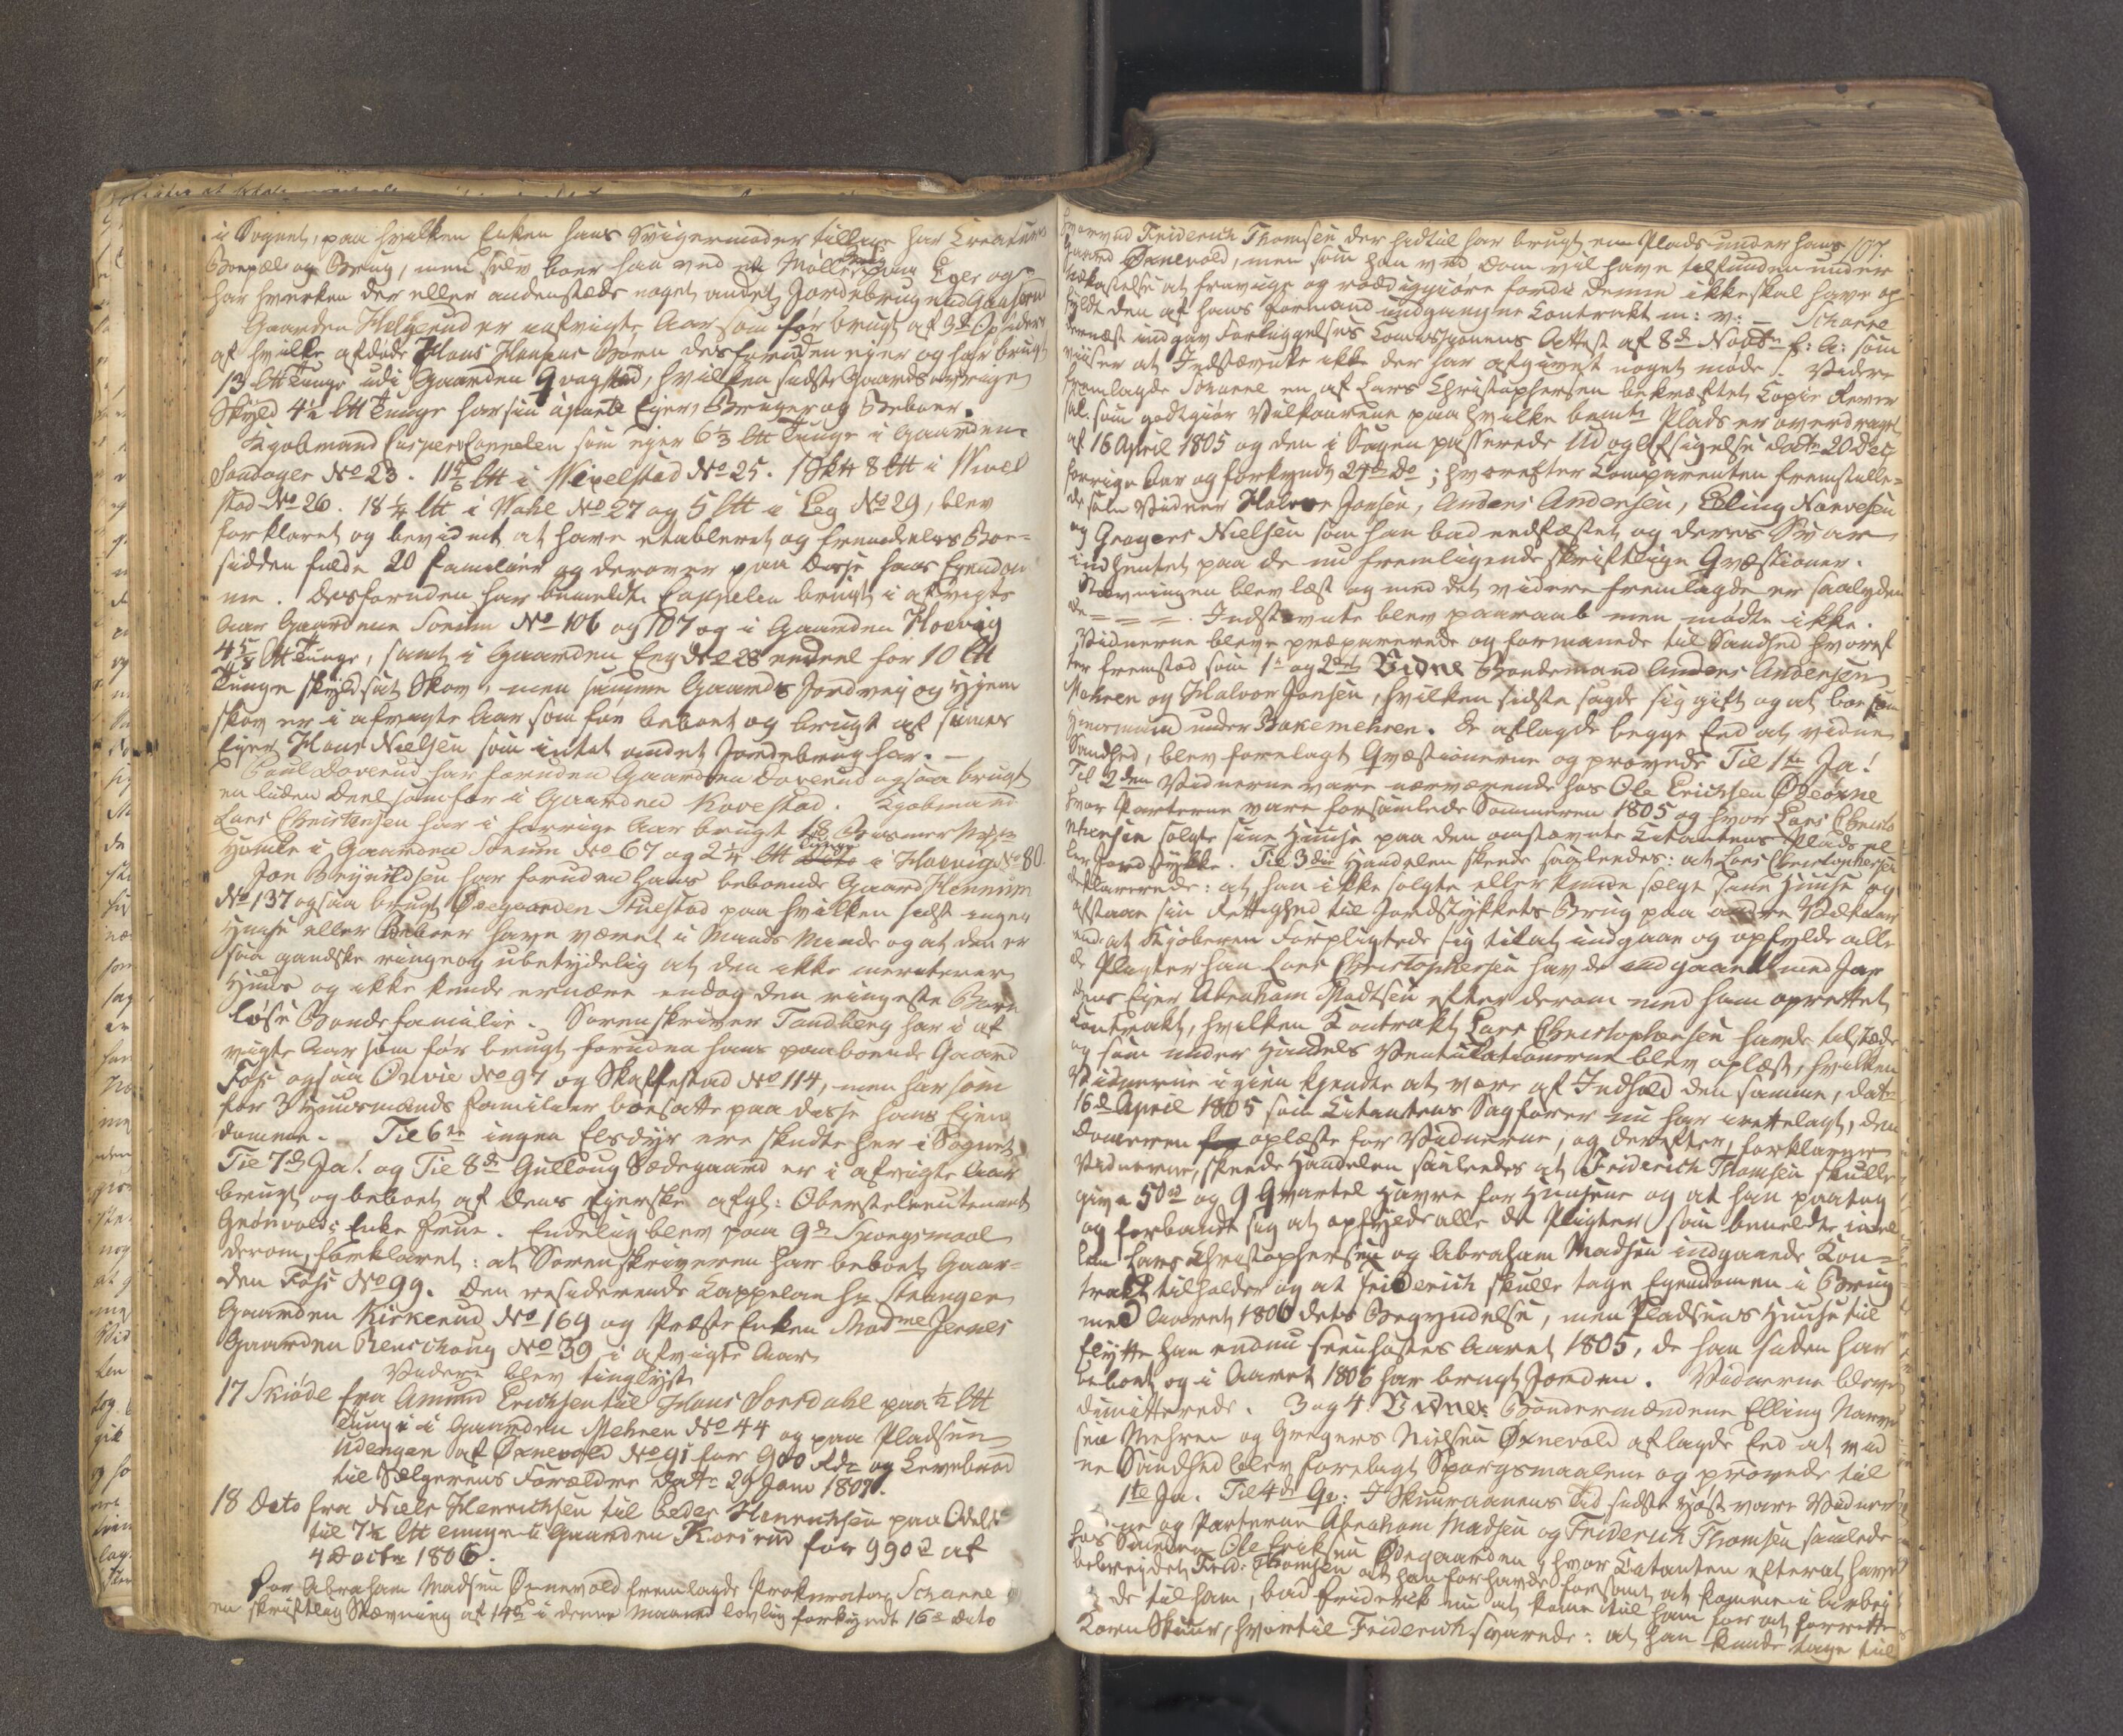 i Sognet, paa hvilken Enken hans Svigermoder tillige har Creaturer
Boepæl og Brug, men selv boer han ved et Møllebrug paa Eger og
har hverken der eller andenstæds noget andet Jordebrug end Gaarden
Gaarden Helgerud er i afvigte Aar som før brugt af 3de Opsidere
af hvilke afdøde Hans Hansens Børn desforuden ejer og har brugt
13 ltt Tunge udi Gaarden Qvagstad, hvilken sidste Gaards øvrige
Skyld 4½ ltt Tunge har sin aparte Ejer, Bruger og Beboer.
Kjøbmand Casper Cappelen som ejer 6⅓ ltt Tunge i Gaarden
Sandager No 23. 11⅚ ltt i Wixelstad No 25. 1 Sktt 8 ltt i Wixel
stad No 26. 18¼ ltt i Wahl No 27 og 5 ltt i Eeg No 29, blev
forklaret og bevidnet at have etableret og fremdeles Boe-
siddende fulde 20 Familier og derover paa disse hans Ejendom
me. Desforuden har bemeldte Cappelen brugt i afvigte
Aar Gaardene Soeum No 106 og 107 og i Gaarden Hoevig
4 5/18 ltt Tunge, samt i Gaarden Eeg No 28 endeel for 10 ltt
Tunge skyldsat Skov, men samme Gaards Jordvej og Hjem
skov er i afvigte Aar som før beboet og brugt af sammes
Ejer Hans Nielsen som intet andet Jordebrug har. —
Poul Doverud har foruden Gaarden Doverud ogsaa brugt
en liden Deel som før i Gaarden Kovestad. Kjøbmand
Lars Christensen har i forrige Aar brugt 1 Bismer
Humle i Gaarden Soeum No 67 og 2¼ ltt Tunge i Hoevig No 80
Jon Brynildsen har foruden hans beboende Gaard Hennum
No 137 ogsaa brugt Ødegaarden Stuestad paa hvilken sidst ingen
Huuse eller Beboer have været i Mands Minde og at den er
saa gandske ringe og ubetydelig at den ikke meriterer
Huus og ikke kunde ernære endog den ringeste Barn
løse Bondefamilie. Sorenskriver Tandberg har i af
vigte Aar som før brugt foruden hans paaboende Gaard
Foss ogsaa Ørvie No 97 og Skaffestad No 114, men har som
før 3 Huusmands Familier boesatte paa disse hans Ejen
domme. Til 6te ingen Elsdyr ere skudte her i Sognet
Til 7de Ja! og Til 8de Gulloug Sædegaard er i afvigte Aar
brugt og beboet af dens Ejerske afgl: Oberstelieutenant
Grønvolds Enke Frue. Endelig blev paa 9de Spørgsmaal
derom, forklaret: at Sorenskriveren har beboet Gaar-
den Foss No 99. Den residerende Cappelan Hr Stranger
Gaarden Kirkerud No 169 og Præste Enken Madme Jerves
Gaarden Renschoug No 39 i afvigte Aar
Videre blev tinglyst
17 Skiøde fra Amund Erichsen til Hans Sorsdahl paa ½ ltt
Tunge i Gaarden Mehren No 44 og paa Pladsen
Udengen af Ørnevold No 91 for 900 Rdr og Levebrød
til Sælgerens Forældre datr 29 Janv 1807.
18 Dito fra Niels Henrichsen til Peder Henrichsen paa Odels
til 7½ ltt tunge i Gaarden Korserud for 990 rd af
4 Octbr 1806.
For Abraham Madsen Ørnevold fremlagde Prokurator Scharre
en skriftlig Stævning af 14de i denne Maaned lovlig forkyndt 16de dito
107.
hvorved Friderich Thomsen der hidtil har brugt een Plads under hans
Gaard Ørnevold, men som han ved Dom vil have tilfunden under
Udkastelse at fravige og ryddiggjøre fordi denne ikke skal have op
fyldt den af hans Formand indgangne Contrakt m: v: — Scharre
dernæst indgav Forliggelses Commissionens Attest af 8de Novbr f: A: som
viiser at Indstævnte ikke der har afgivet noget møde. Videre
fremlagde Scharre en af Lars Christophersen bekræftet Copie Rever
sal: som godtgiør Vilkaarene paa hvilke bemte Plads er overdraget
af 16 April 1805 og den i Sagen passerede Udoglsigelse datr 20 Dec
forrige Aar og forkyndt 24de do; hvorefter Comparenten fremstille-
de som Vidner Halvor Jonsen, Anders Andersen, Elling Narvesen
og Gregers Nielsen som han bad eedfæstet og deres Svar
indhentet paa de nu fremligende skriftlige Qvæstioner.
Stævningen blev læst og med det videre fremlagde er saalyden
de = = = = . Indstævnte blev paaraab men mødte ikke.
Vidnerne bleve præparerede og formanede til Sandhed hvoref
ter fremstod som 1te og 2det Vidne Bondemand Anders Andersen
Mehren og Halvor Jonsen, hvilken sidste sagde sig gift og at boe som
Huusmand under Bakemehren. De aflagde begge Eed at vidne
Sandhed, blev forelagt Qvæstionerne og prøvede Til 1te Ja!
Til 2den Vidnerne vare nærværende hos Ole Erichsen Ødeørne
hvor Parterne vare forsamlede Sommeren 1805 og hvor Lars Christo
phersen solgte sine Huuse paa den omstævnte Citantens Plads el
ler Jordstykke. Til 3die Handelen skeede saaledes: at Lars Christophersen
deklarerede: at han ikke solgte eller kunde sælge sine Huuse og
afstaae sin Rettighed til Jordstykkets Brug paa andre Vilkaar
end at Kjøberen forpligtede sig til at indgaae og opfylde alle
de Pligter han Lars Christophersen havde indgaaet med Jor
dens Ejer Abraham Madtsen efter derom med ham oprettet
Contrakt, hvilken Kontrakt Lars Christophersen havde tilstæde
og som under Handels Ventilationerne blev oplæst, hvilken
Vidnerne igien kjendte at være af Indhold den samme, datr
16de April 1805 som Citantens Sagfører nu har irettelagt, den
Dommeren oplæste for Vidnerne, og derefter, forklarer
Vidnerne, skeede Handelen saaledes at Friderich Thomsen skulle
give 50 rd og 9 Qvartel Havre for Huusene og at han paatog
og forbandt sig at opfylde alle de Pligter som bemeldte imel
lem Lars Christophersen og Abraham Madsen indgaaede Kon-
trakt tilholder og at Friderich skulle tage Ejendommen i Brug
med Aaret 1806 dets Begyndelse, men Pladsens Huuse til
flytte han endnu seenhøstes Aaret 1805, de han siden har
beboet og i Aaret 1806 har brugt Jorden. Vidnerne bleve
dimitterede. 3 og 4 Vidner Bondermændene Elling Narve
sen Mehren og Gregers Nielsen Ørnevold aflagde Eed at vid
ne Sandhed blev forelagt Spørgsmaalene og prøvede til
1te Ja. Til 4de Qv: I Skuuraanens Tid sidste Høst vare Vidner
ne og Parterne Abraham Madsen og Friderich Thomsen samlede
hos Svoger Ole Eriksen Ødegaarden, hvor Citanten efterat have
bebreydet Frid: Thomsen at han forhen havde forsømt at komme i Arbej
de til ham, bad Friderik nu at komme til ham for at forrette
Korn Skuur, hvortil Friderich svarede: at han kunde tage til